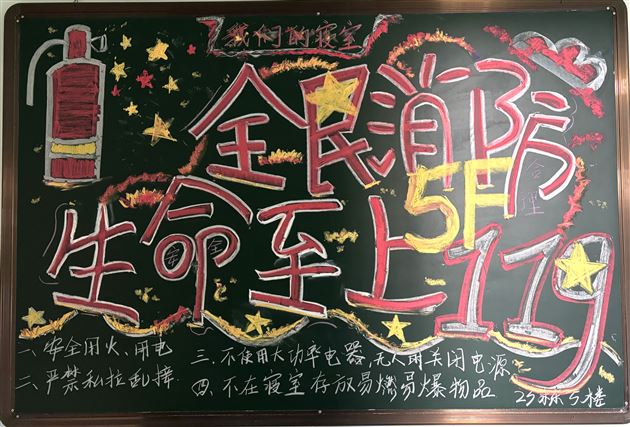 我们的寝室
全民消防
合理
5F
生命至上119
安全
一、安全用火、用电
二、严禁私拉乱接
三、不使用大功率电器,无人用关闭电源
四、不在寝室存放易燃易爆物品
25栋5楼